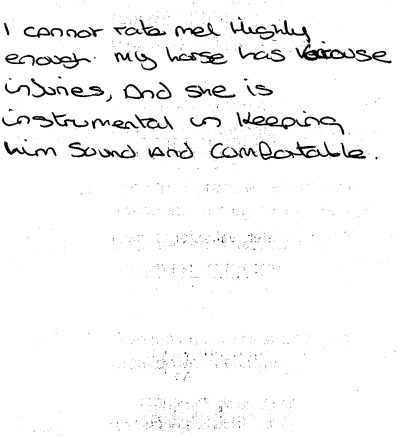 I cannot rate mel Highly
enough. My horse has Variouse
injuries, And she is
instrumental in keeping
him Sound And Comfortable.